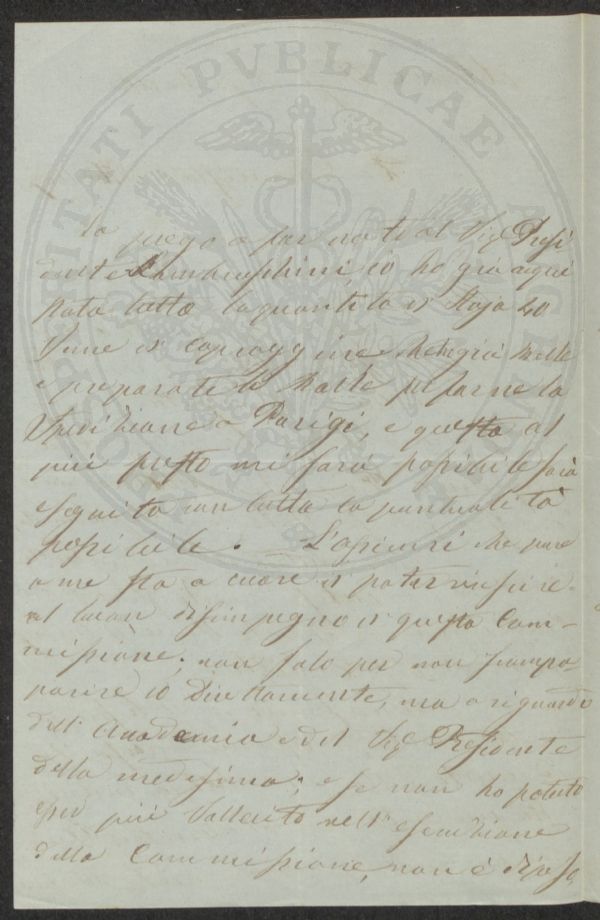 PROSPERITATI PVBLICAE AVGENDAE
La prego a far noto al Sig. Presi
dente che io ho già acqui
stato tutta la quantità di Staja 40
Seme di capraggine
e preparate le Balle per farne la
Spedizione a Parigi, e questa al
più presto mi sarà possibile sarà
eseguita con tutta la puntualità
possibile. _ L'assicuri che pure
a me sta a cuore di poter riuscire
al buon disimpegno di questa Com-
missione, non solo per non scompa-
parire io Direttamente, ma a riguardo
dell'Accademia e del Sig. Presidente
della medesima; e se non ho potuto
esser più sollecito nell'esecuzione
della Commissione, non è dipeso